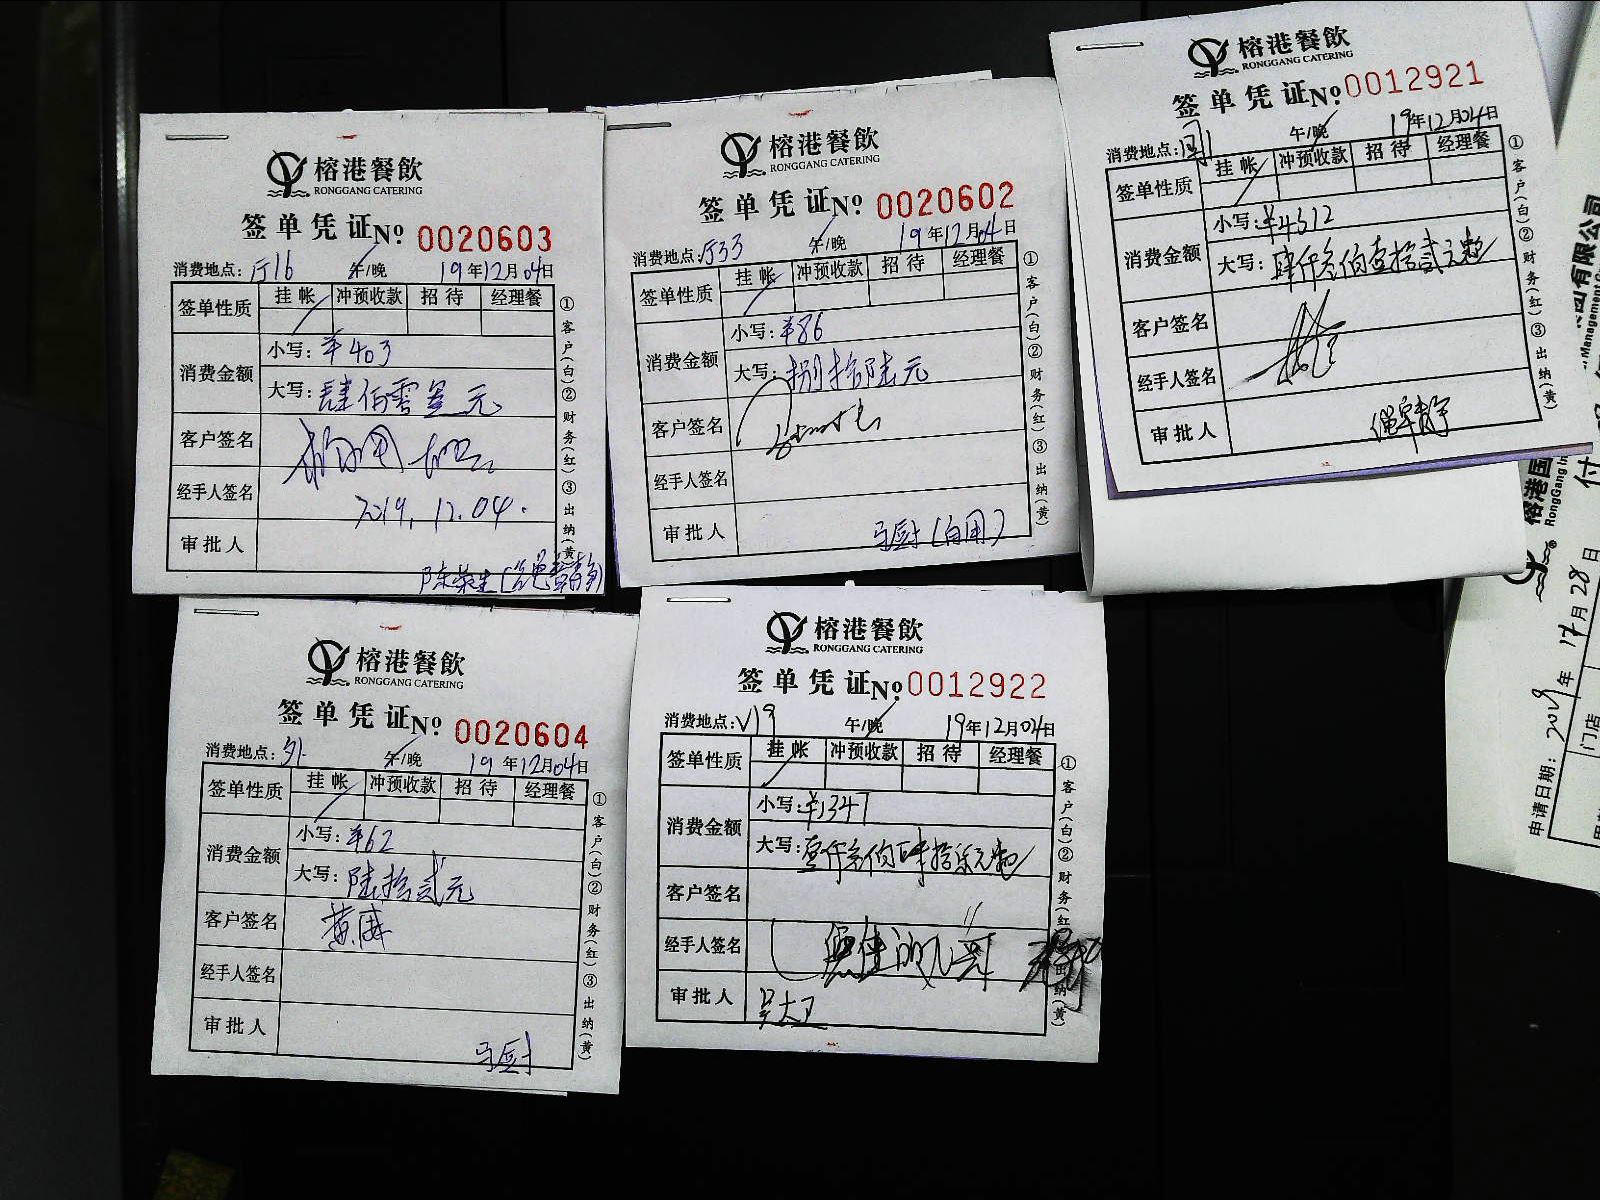 榕港餐飲
RONGGANG CATERING
签单凭证№ 0020603
消费地点: 厅16 午/晚 19年12月04日
签单性质 挂帐 冲预收款 招待 经理餐
消费金额 小写: ¥403
大写: 肆佰零叁元
客户签名
经手人签名 2019.12.04.
审批人
陈荣生
①客户(白)②财务(红)③出纳(黄)
榕港餐飲
RONGGANG CATERING
签单凭证№ 0020602
消费地点: 厅33 午/晚 19年12月04日
签单性质 挂帐 冲预收款 招待 经理餐
消费金额 小写: ¥86
大写: 捌拾陆元
客户签名
经手人签名
审批人 马厨(自用)
①客户(白)②财务(红)③出纳(黄)
榕港餐飲
RONGGANG CATERING
签单凭证№ 0012921
消费地点: 午/晚 19年12月04日
签单性质 挂帐 冲预收款 招待 经理餐
消费金额 小写: ¥4312
大写: 肆仟叁佰壹拾贰元整
客户签名
经手人签名
审批人
①客户(白)②财务(红)③出纳(黄)
榕港餐飲
RONGGANG CATERING
签单凭证№ 0020604
消费地点: 外 午/晚 19年12月04日
签单性质 挂帐 冲预收款 招待 经理餐
消费金额 小写: ¥62
大写: 陆拾贰元
客户签名 黄庆
经手人签名
审批人
马厨
①客户(白)②财务(红)③出纳(黄)
榕港餐飲
RONGGANG CATERING
签单凭证№ 0012922
消费地点: V19 午/晚 19年12月04日
签单性质 挂帐 冲预收款 招待 经理餐
消费金额 小写: ¥1347
大写: 壹仟叁佰肆拾柒元整
客户签名
经手人签名
审批人 吴大卫
①客户(白)②财务(红)③出纳(黄)
团有限公司
Management
榕港国
RongGang In
付
申请日期: 2019年12月28日
门店